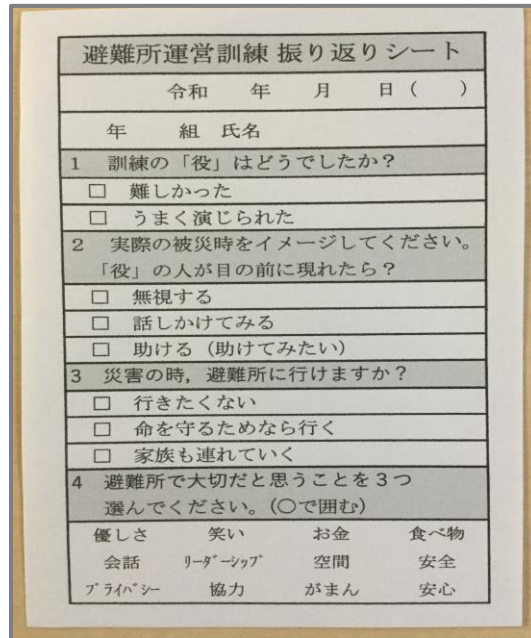 避難所運営訓練 振り返りシート
令和　　年　　月　　日（　　）
年　　組　氏名
1　訓練の「役」はどうでしたか？
□　難しかった
□　うまく演じられた
2　実際の被災時をイメージしてください。
「役」の人が目の前に現れたら？
□　無視する
□　話しかけてみる
□　助ける（助けてみたい）
3　災害の時，避難所に行けますか？
□　行きたくない
□　命を守るためなら行く
□　家族も連れていく
4　避難所で大切だと思うことを３つ
選んでください。(○で囲む)
優しさ　　笑い　　お金　　食べ物
会話　　ﾘｰﾀﾞｰｼｯﾌﾟ　　空間　　安全
ﾌﾟﾗｲﾊﾞｼｰ　　協力　　がまん　　安心